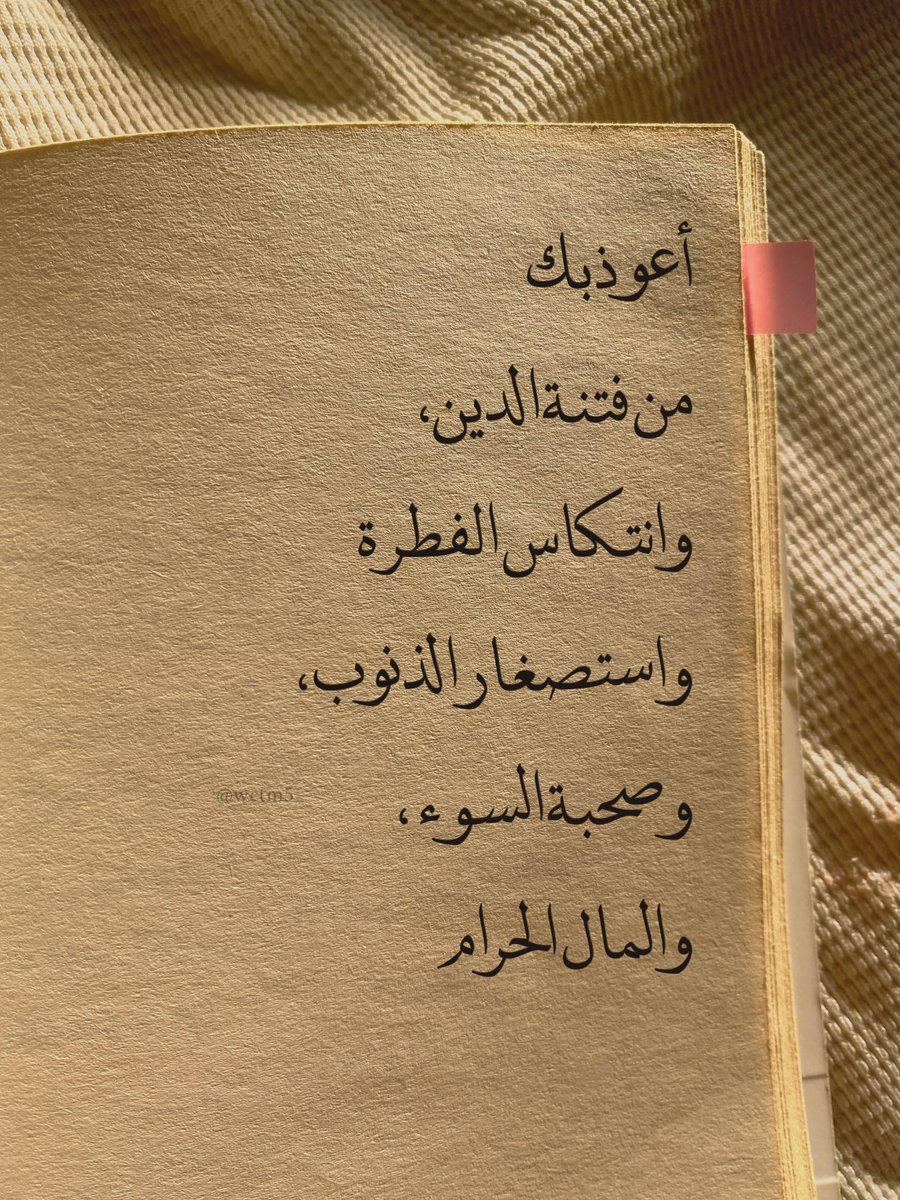 أعوذ بك
من فتنة الدين،
وانتكاس الفطرة
واستصغار الذنوب،
@wctm5
وصحبة السوء،
والمال الحرام